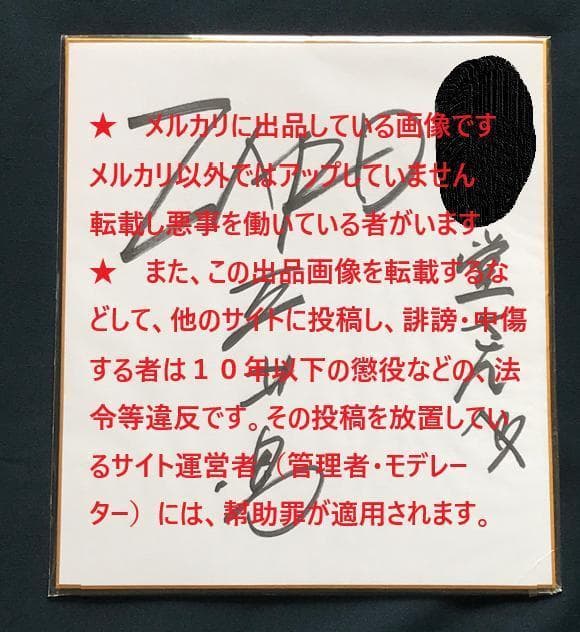 ★ メルカリに出品している画像です
メルカリ以外ではアップしていません
転載し悪事を働いている者がいます
★ また、この出品画像を転載するな
どして、他のサイトに投稿し、誹謗・中傷
する者は１０年以下の懲役などの、法
令等違反です。その投稿を放置してい
るサイト運営者（管理者・モデレー
ター）には、幇助罪が適用されます。
ZARD